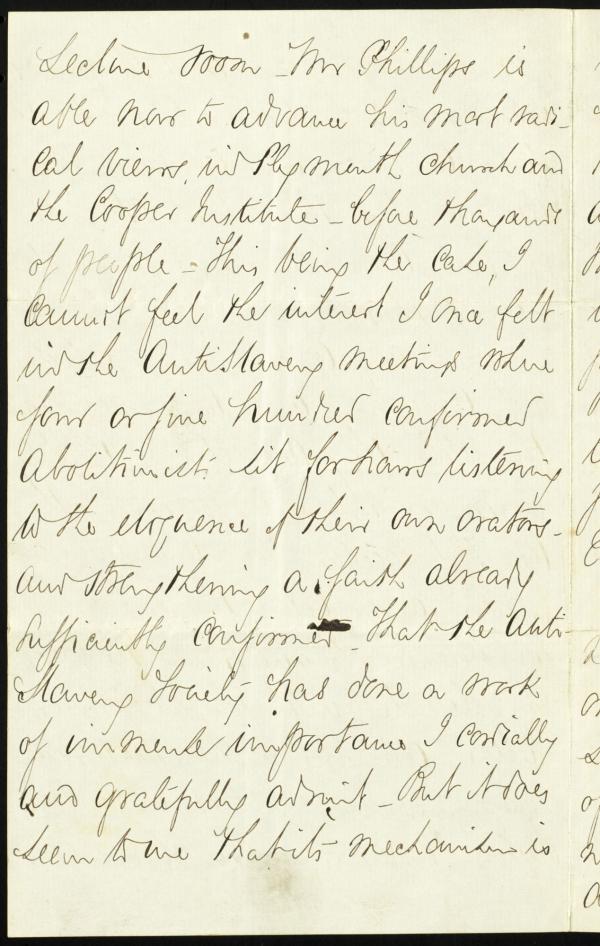 Lecture room - Mr Phillips is
able now to advance his most radi-
cal views, in Plymouth church and
the Cooper Institute - before thousands
of people - This being the case, I
cannot feel the interest I once felt
in the AntiSlavery meetings where
four or five hundred confirmed
Abolitionists sit for hours listening
to the eloquence of their own orators -
and strengthening a faith already
sufficiently confirmed - That the Anti-
Slavery Society has done a work
of immense importance I cordially
and gratefully admit - But it does
seem to me that its mechanism is